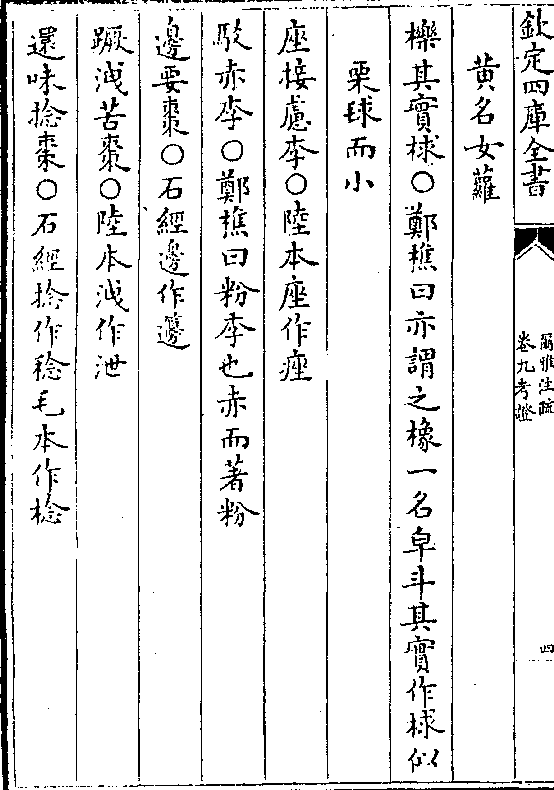 欽定四庫全書
爾雅注疏
卷九考證
四
黄名女蘿
櫟其實梂○鄭樵曰亦謂之橡一名皁斗其實作梂似
栗毬而小
座接慮李○陸本座作痤
駁赤李○鄭樵曰粉李也赤而著粉
邊要棗○石經邊作籩
蹶洩苦棗○陸本洩作泄
還味捻棗○石經捻作稔毛本作棯